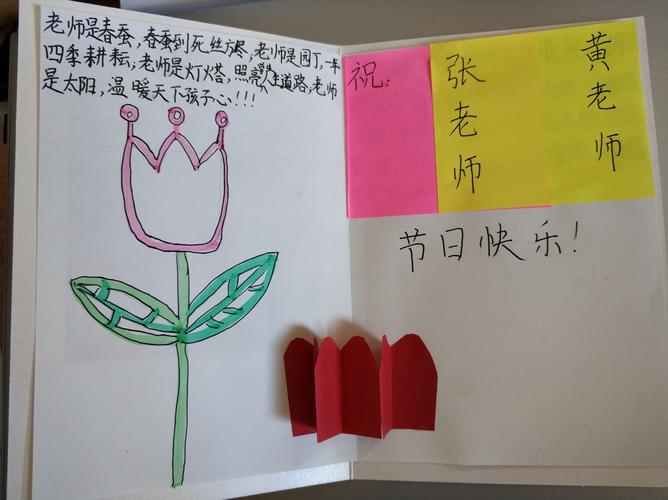 老师是春蚕，春蚕到死丝方尽，老师是园丁，一年
四季耕耘；老师是灯塔，照亮人生道路，老师
是太阳，温暖天下孩子心！！！
祝：
张老师
黄老师
节日快乐！